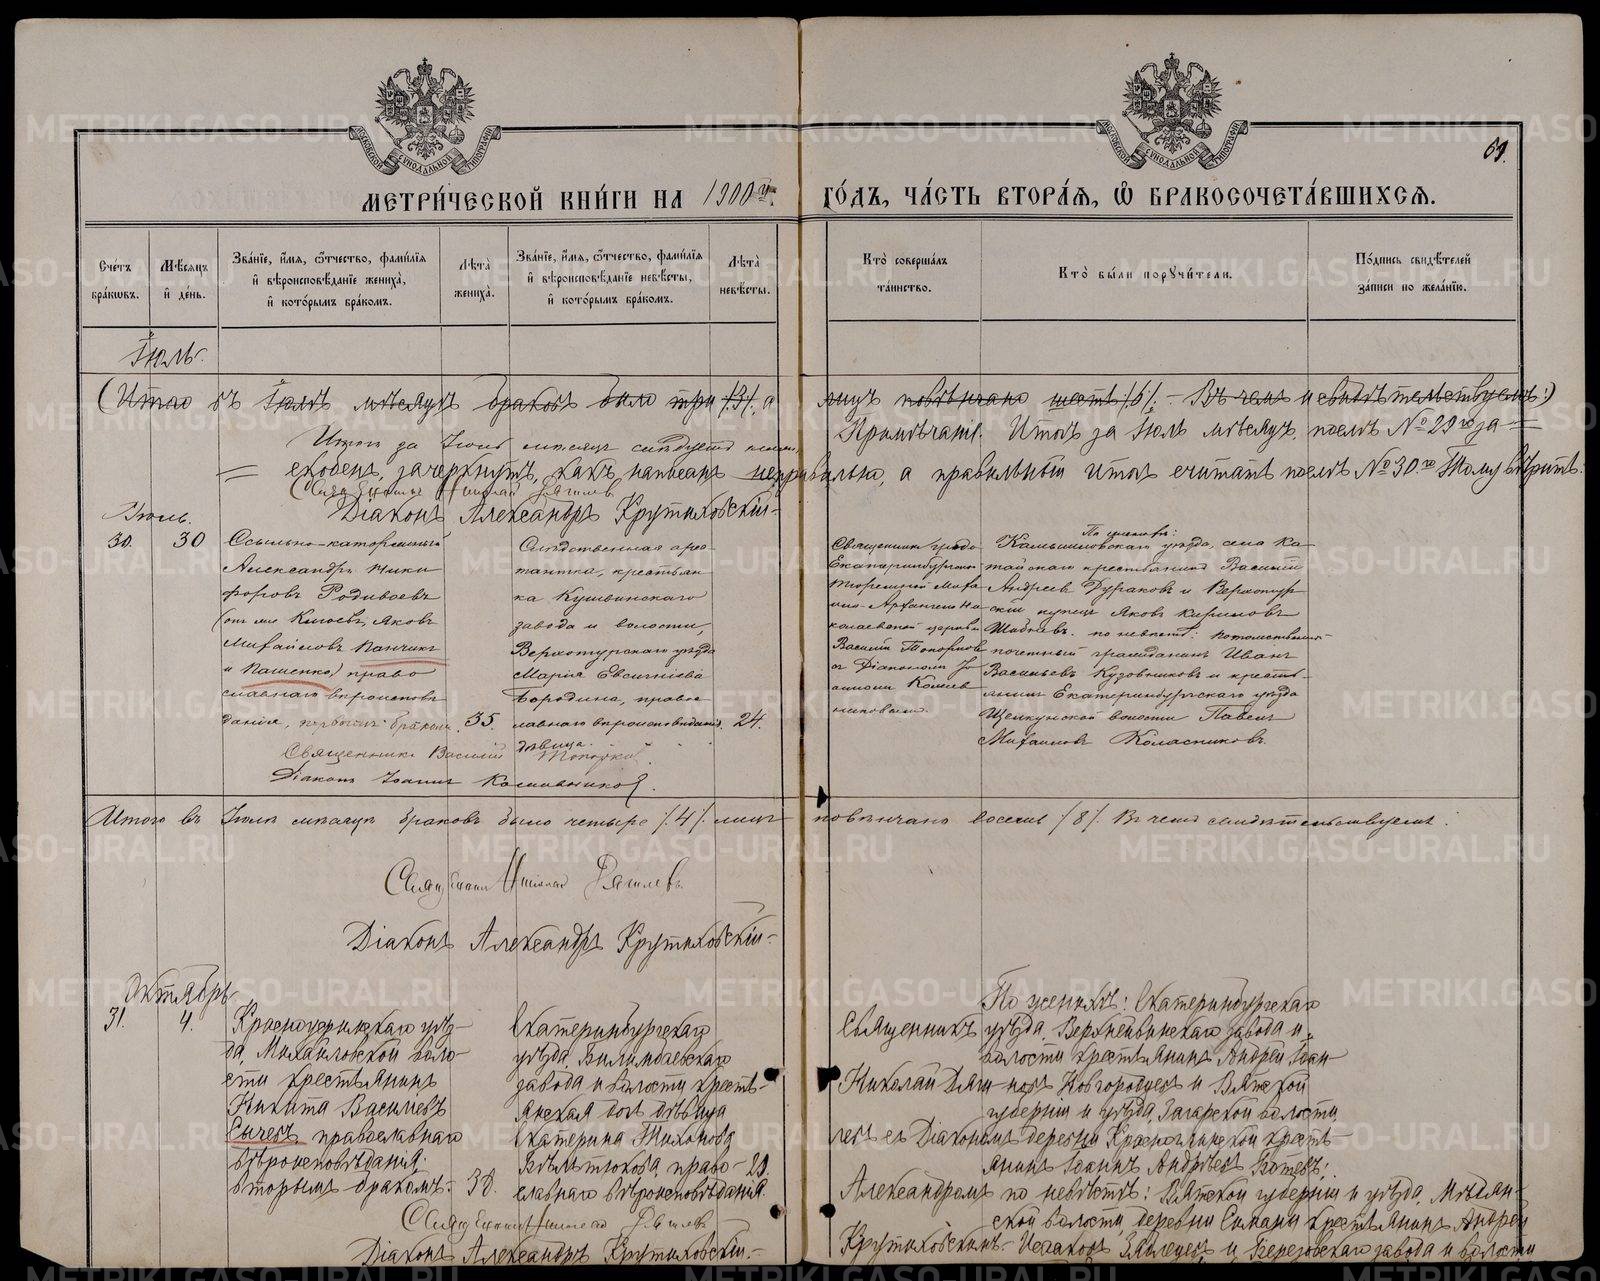 МЕТРИ́ЧЕСКОЙ КНИ́ГИ НА 1900й ГО́ДЪ, ЧА́СТЬ ВТОРА́Я, Ѡ҆ БРАКОСОЧЕТА́ВШИХСЯ.
69.
Сче́тъ бра́кѡвъ.
Мѣ́сяцъ и҆ де́нь.
Зва́нїе, и҆́мя, ѻ҆́тчество, фами́лїя и҆ вѣроисповѣ́данїе жениха̀, и҆ кото́рымъ бра́комъ.
Лѣ́та жениха̀.
Зва́нїе, и҆́мя, ѻ҆́тчество, фами́лїя и҆ вѣроисповѣ́данїе невѣ́сты, и҆ кото́рымъ бра́комъ.
Лѣ́та невѣ́сты.
Кто̀ соверша́лъ та́инство.
Кто̀ бы́ли порꙋчи́тели.
По́дпись свидѣ́телей за́писи по жела́нїю.
Іюль.
(Итого въ Іюлѣ мѣсяцѣ браковъ было три /3/, а лицъ повѣнчано шесть /6/. – Въ чемъ и свидѣтельствуемъ:)
Итогъ за Іюль мѣсяцъ
Примѣчаніе. Итогъ за Іюль мѣсяцъ, послѣ № 29го за=
=черкнутъ, какъ написанъ неправильно, а правильный итогъ считать послѣ № 30.го Тому вѣрить:
Діаконъ Александръ Крутиховскій
Іюль.
30.
30
Ссыльно-каторжный
Александръ Ники
форовъ Родивоевъ
Яковъ
Михайловъ Панчикъ
и Пашенко) право
славнаго вѣроисповѣ
данія, первымъ бракомъ.
35.
Слѣдственная арес
тантка, крестьян
ка Кушвинскаго
завода и волости,
Верхотурскаго уѣзда
Марія Евсигнiева
Бородина, правос
лавнаго вѣроисповѣданія,
дѣвица.
24.
Священникъ градо
Екатеринбургской
тюремной Миха
ило-Архангело Ни
колаевской церкви
Василій Топорковъ
съ Діакономъ Іо
анномъ Колесв
никовымъ.
По женихѣ:
Камышловскаго уѣзда, села Ка
тайскаго крестьянинъ Василій
Андреевъ Дураковъ и Верхотур
скій купецъ Яковъ
по невѣстѣ: потомственный
почетный гражданинъ Иванъ
Васильевъ Кузовниковъ и кресть-
янинъ Екатеринбургскаго уѣзда
Щелкунской волости Павелъ
Михаиловъ Колясниковъ.
Священникъ Василій Топорковъ.
Діаконъ Іоаннъ Колесвниковъ.
Итого въ Іюлѣ мѣсяцѣ браковъ было четыре /4/. лицъ повѣнчано восемь /8/. Въ чемъ свидѣтельствуемъ.
Священникъ Николай Дягилевъ
Діаконъ Александръ Крутиховскій
Октябрь
31.
4.
Красноуфимскаго уѣз-
да, Михайловской воло-
сти крестьянинъ
Никита Василіевъ
Сычевъ, православнаго
вѣроисповѣданія.
вторымъ бракомъ.
38.
Екатеринбургскаго
уѣзда, Билимбаевскаго
завода и волости кресть-
янская дочь дѣвица
Екатерина Тихонова
Бѣлѣтюкова, право-
славнаго вѣроисповѣданія.
29.
Священникъ
Николай Дяги-
левъ съ Діакономъ
Александромъ
Крутиховскимъ.
По женихѣ: Екатеринбургскаго
уѣзда, Верхнейвинскаго завода и
волости крестьянинъ Андрей Іоан-
новъ Новгородцевъ и Вятской
губерніи и уѣзда, Загарской волости
деревни Красноглинской кресть-
янинъ Іоаннъ Андрѣевъ Ботевъ;
по невѣстѣ: Вятской губерніи и уѣзда, Медян-
ской волости, деревни крестьянинъ Андрей
Исааковъ Зяблецевъ и Березовскаго завода и волости
Священникъ Николай Дягилевъ
Діаконъ Александръ Крутиховскій